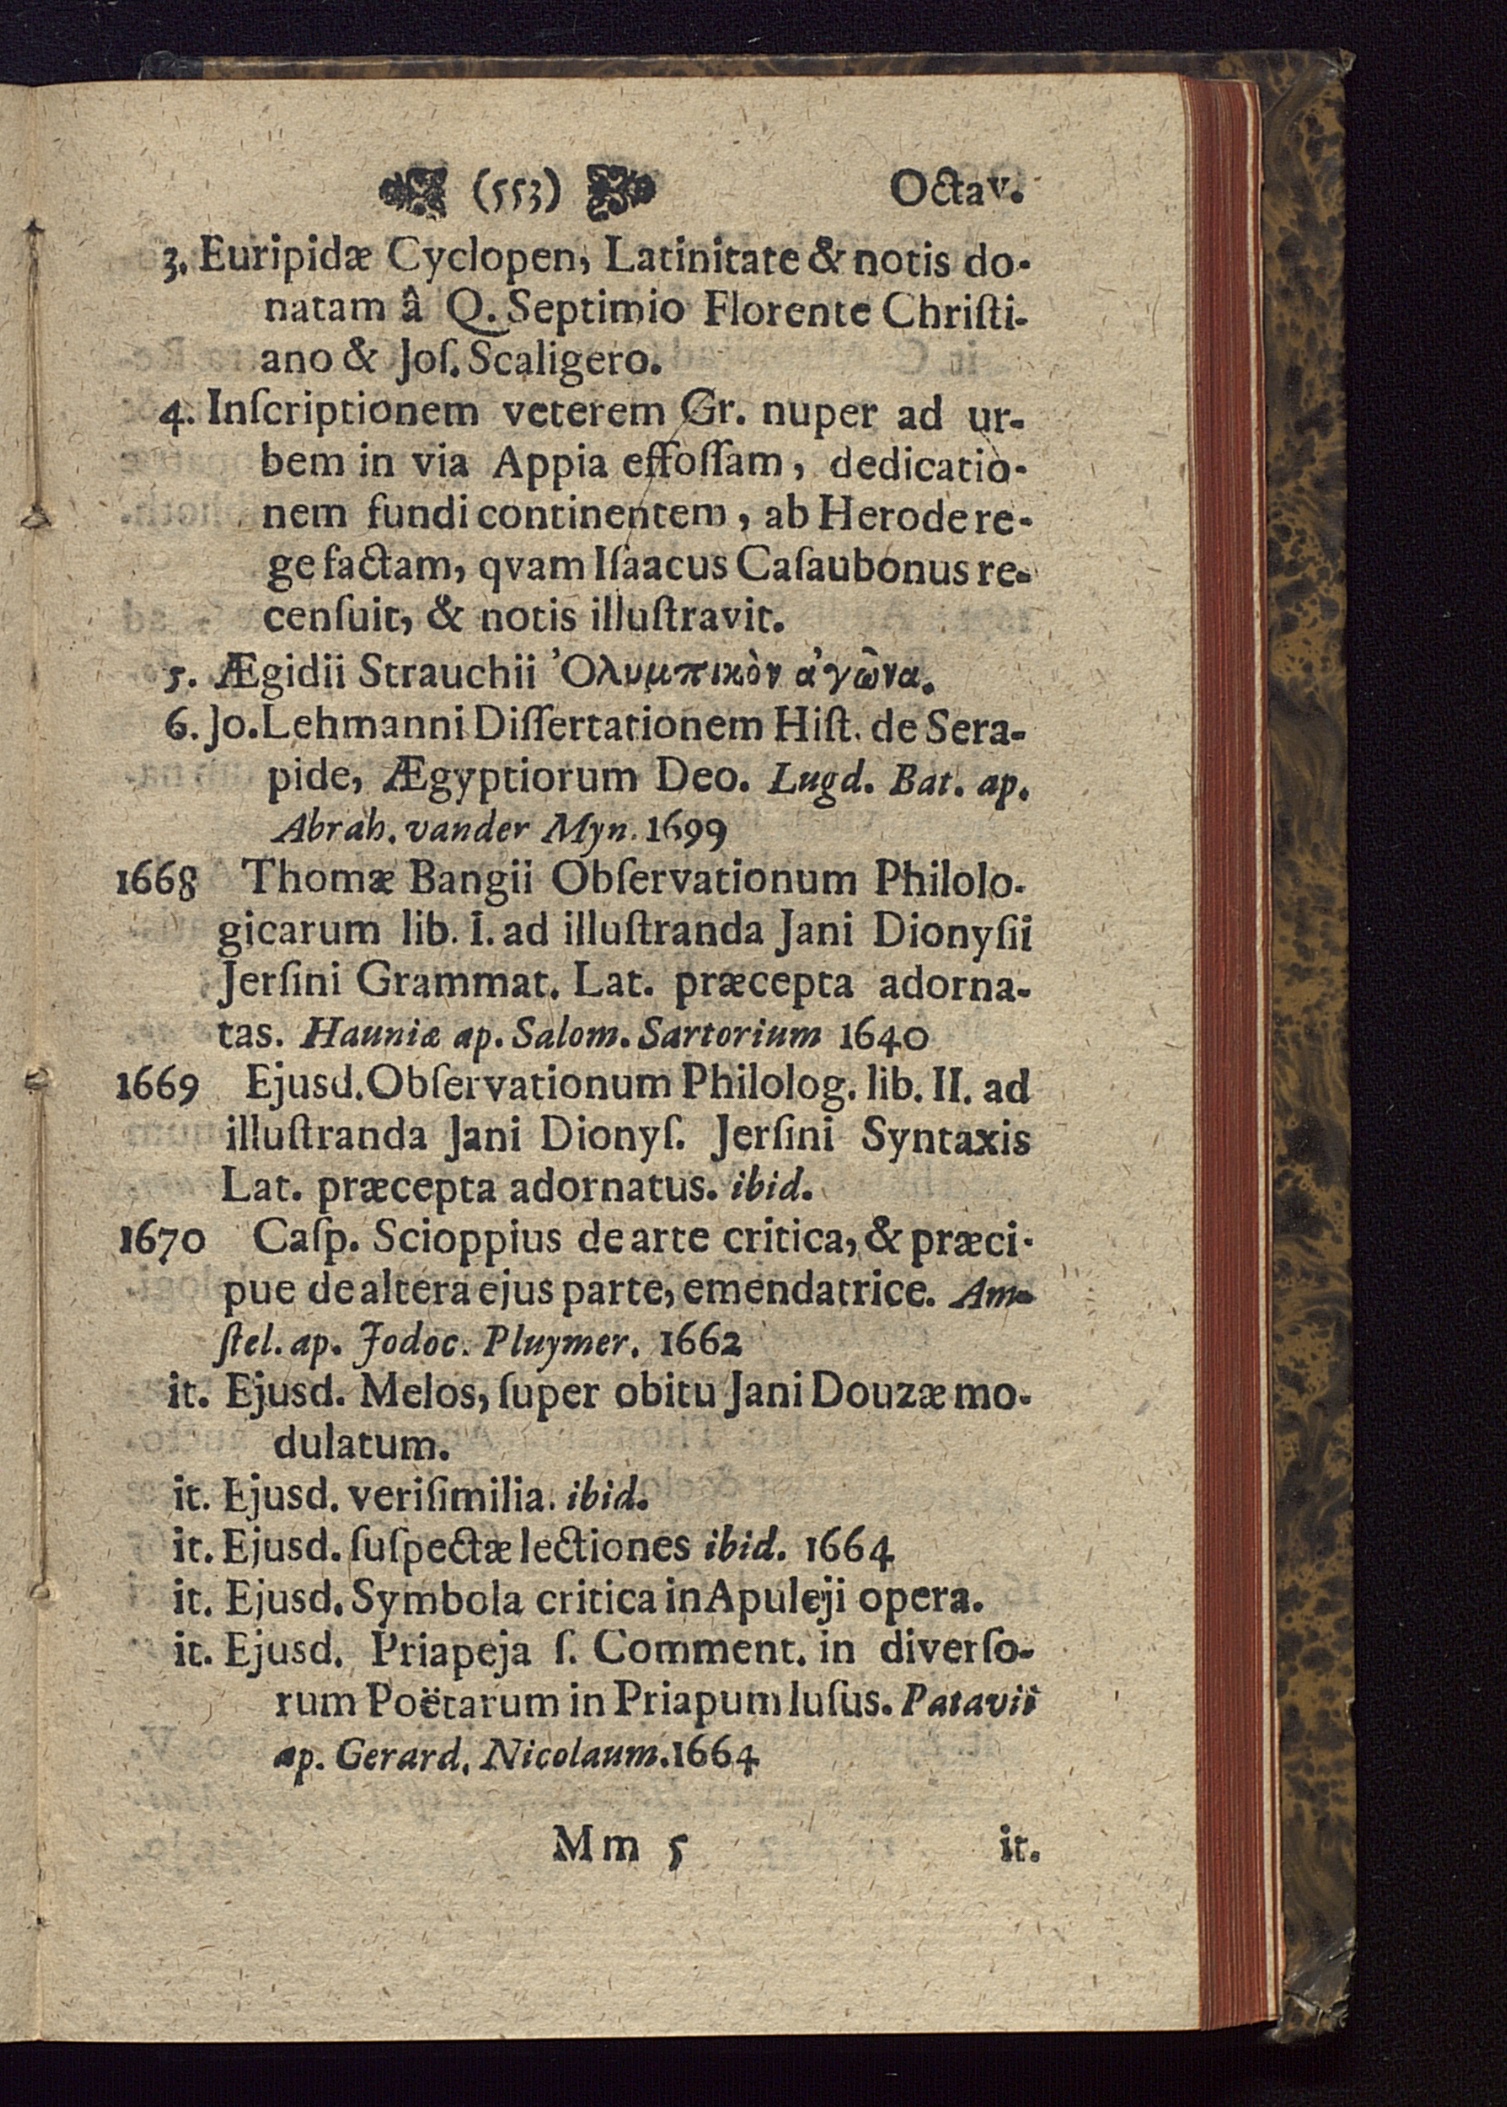 (553) Octav.
3. Euripidæ Cyclopen, Latinitate & notis do-
natam â Q. Septimio Florente Chriſti-
ano & Joſ. Scaligero.
4. Inſcriptionem veterem Gr. nuper ad ur-
bem in via Appia effoſſam, dedicatio-
nem fundi continentem, ab Herode re-
ge factam, qvam Iſaacus Caſaubonus re-
cenſuit, & notis illuſtravit.
5. Ægidii Strauchii Ὀλυμπικὸν ἀγῶνα.
6. Jo. Lehmanni Diſſertationem Hiſt. de Sera-
pide, Ægyptiorum Deo. Lugd. Bat. ap.
Abrah. vander Myn. 1699
1668 Thomæ Bangii Obſervationum Philolo-
gicarum lib. I. ad illuſtranda Jani Dionyſii
Jerſini Grammat. Lat. præcepta adorna-
tas. Hauniæ ap. Salom. Sartorium 1640
1669 Ejusd. Obſervationum Philolog. lib. II. ad
illuſtranda Jani Dionyſ. Jerſini Syntaxis
Lat. præcepta adornatus. ibid.
1670 Caſp. Scioppius de arte critica, & præci-
pue de altera ejus parte, emendatrice. Am-
ſtel. ap. Jodoc. Pluymer. 1662
it. Ejusd. Melos, ſuper obitu Jani Douzæ mo-
dulatum.
it. Ejusd. veriſimilia. ibid.
it. Ejusd. ſuſpectæ lectiones ibid. 1664
it. Ejusd. Symbola critica in Apuleji opera.
it. Ejusd. Priapeja ſ. Comment. in diverſo-
rum Poëtarum in Priapum luſus. Patavii
ap. Gerard. Nicolaum. 1664
Mm 5 it.